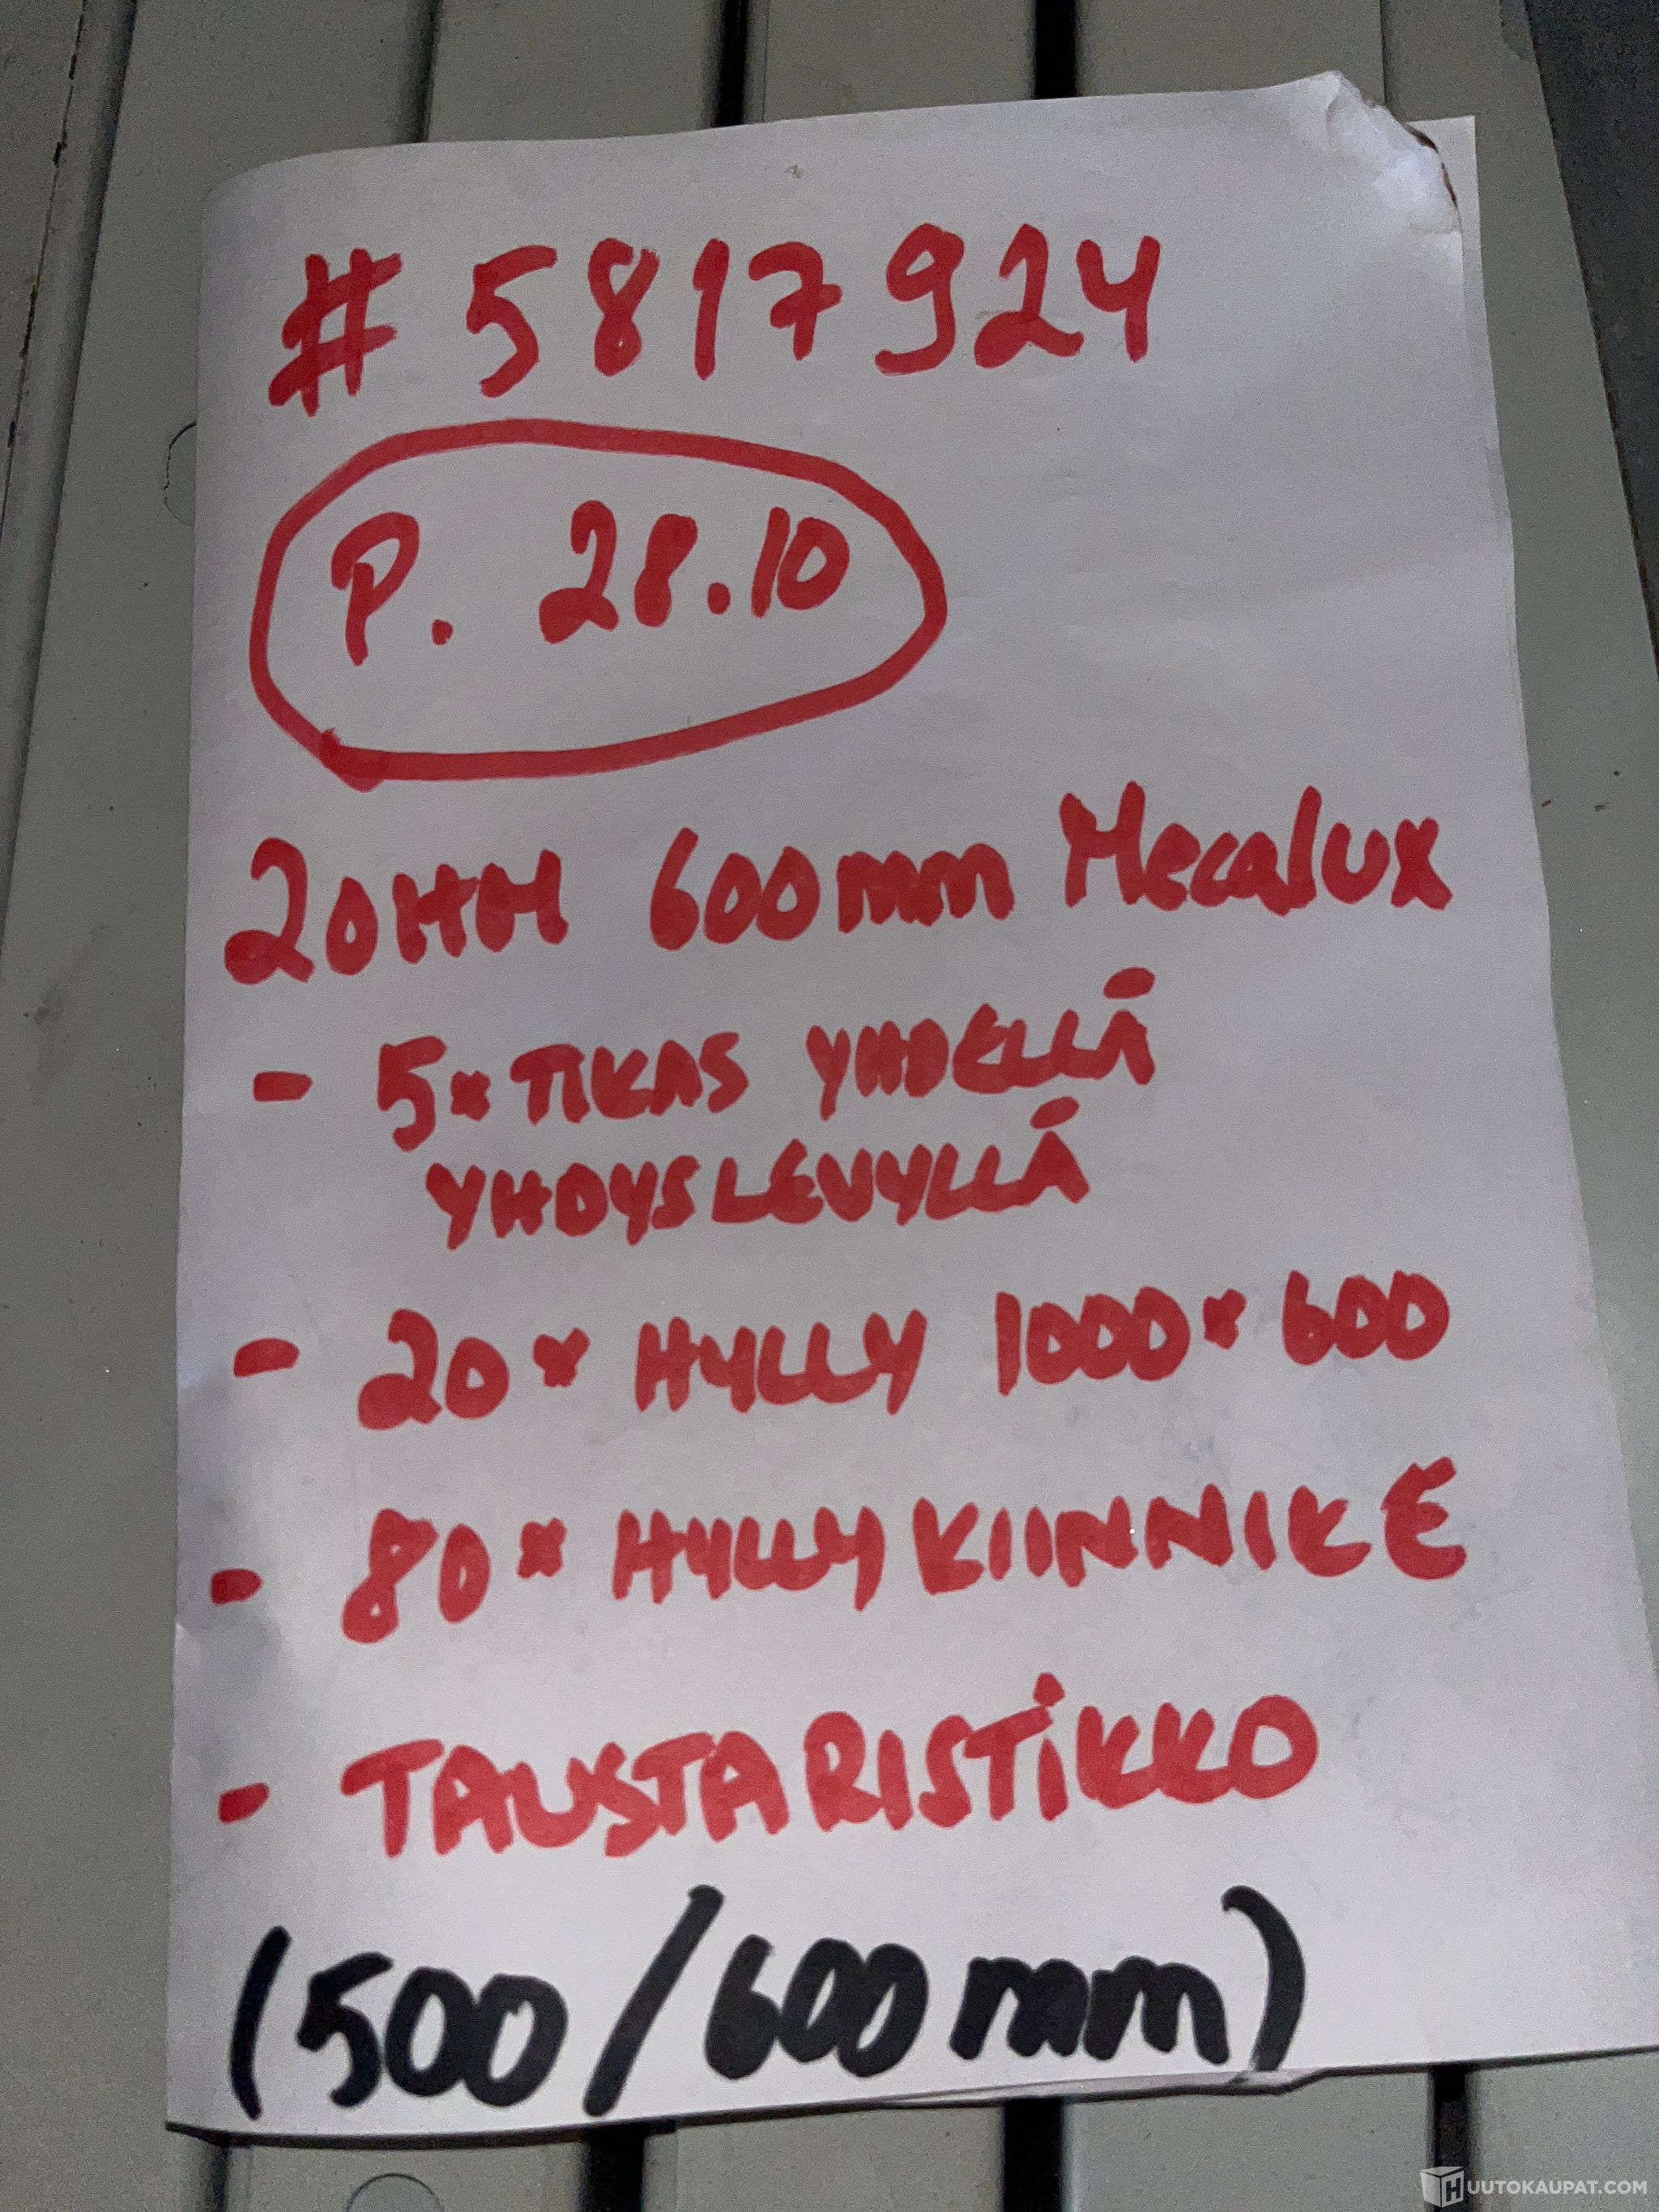 #5817924
P. 28.10
20HM 600mm Mecalux
- 5x TIKAS YHDELLÄ
YHDYSLEVYLLÄ
- 20x HYLLY 1000x600
- 80x HYLLYKIINNIKE
- TAUSTARISTIKKO
(500/600mm)
HUUTOKAUPAT.COM